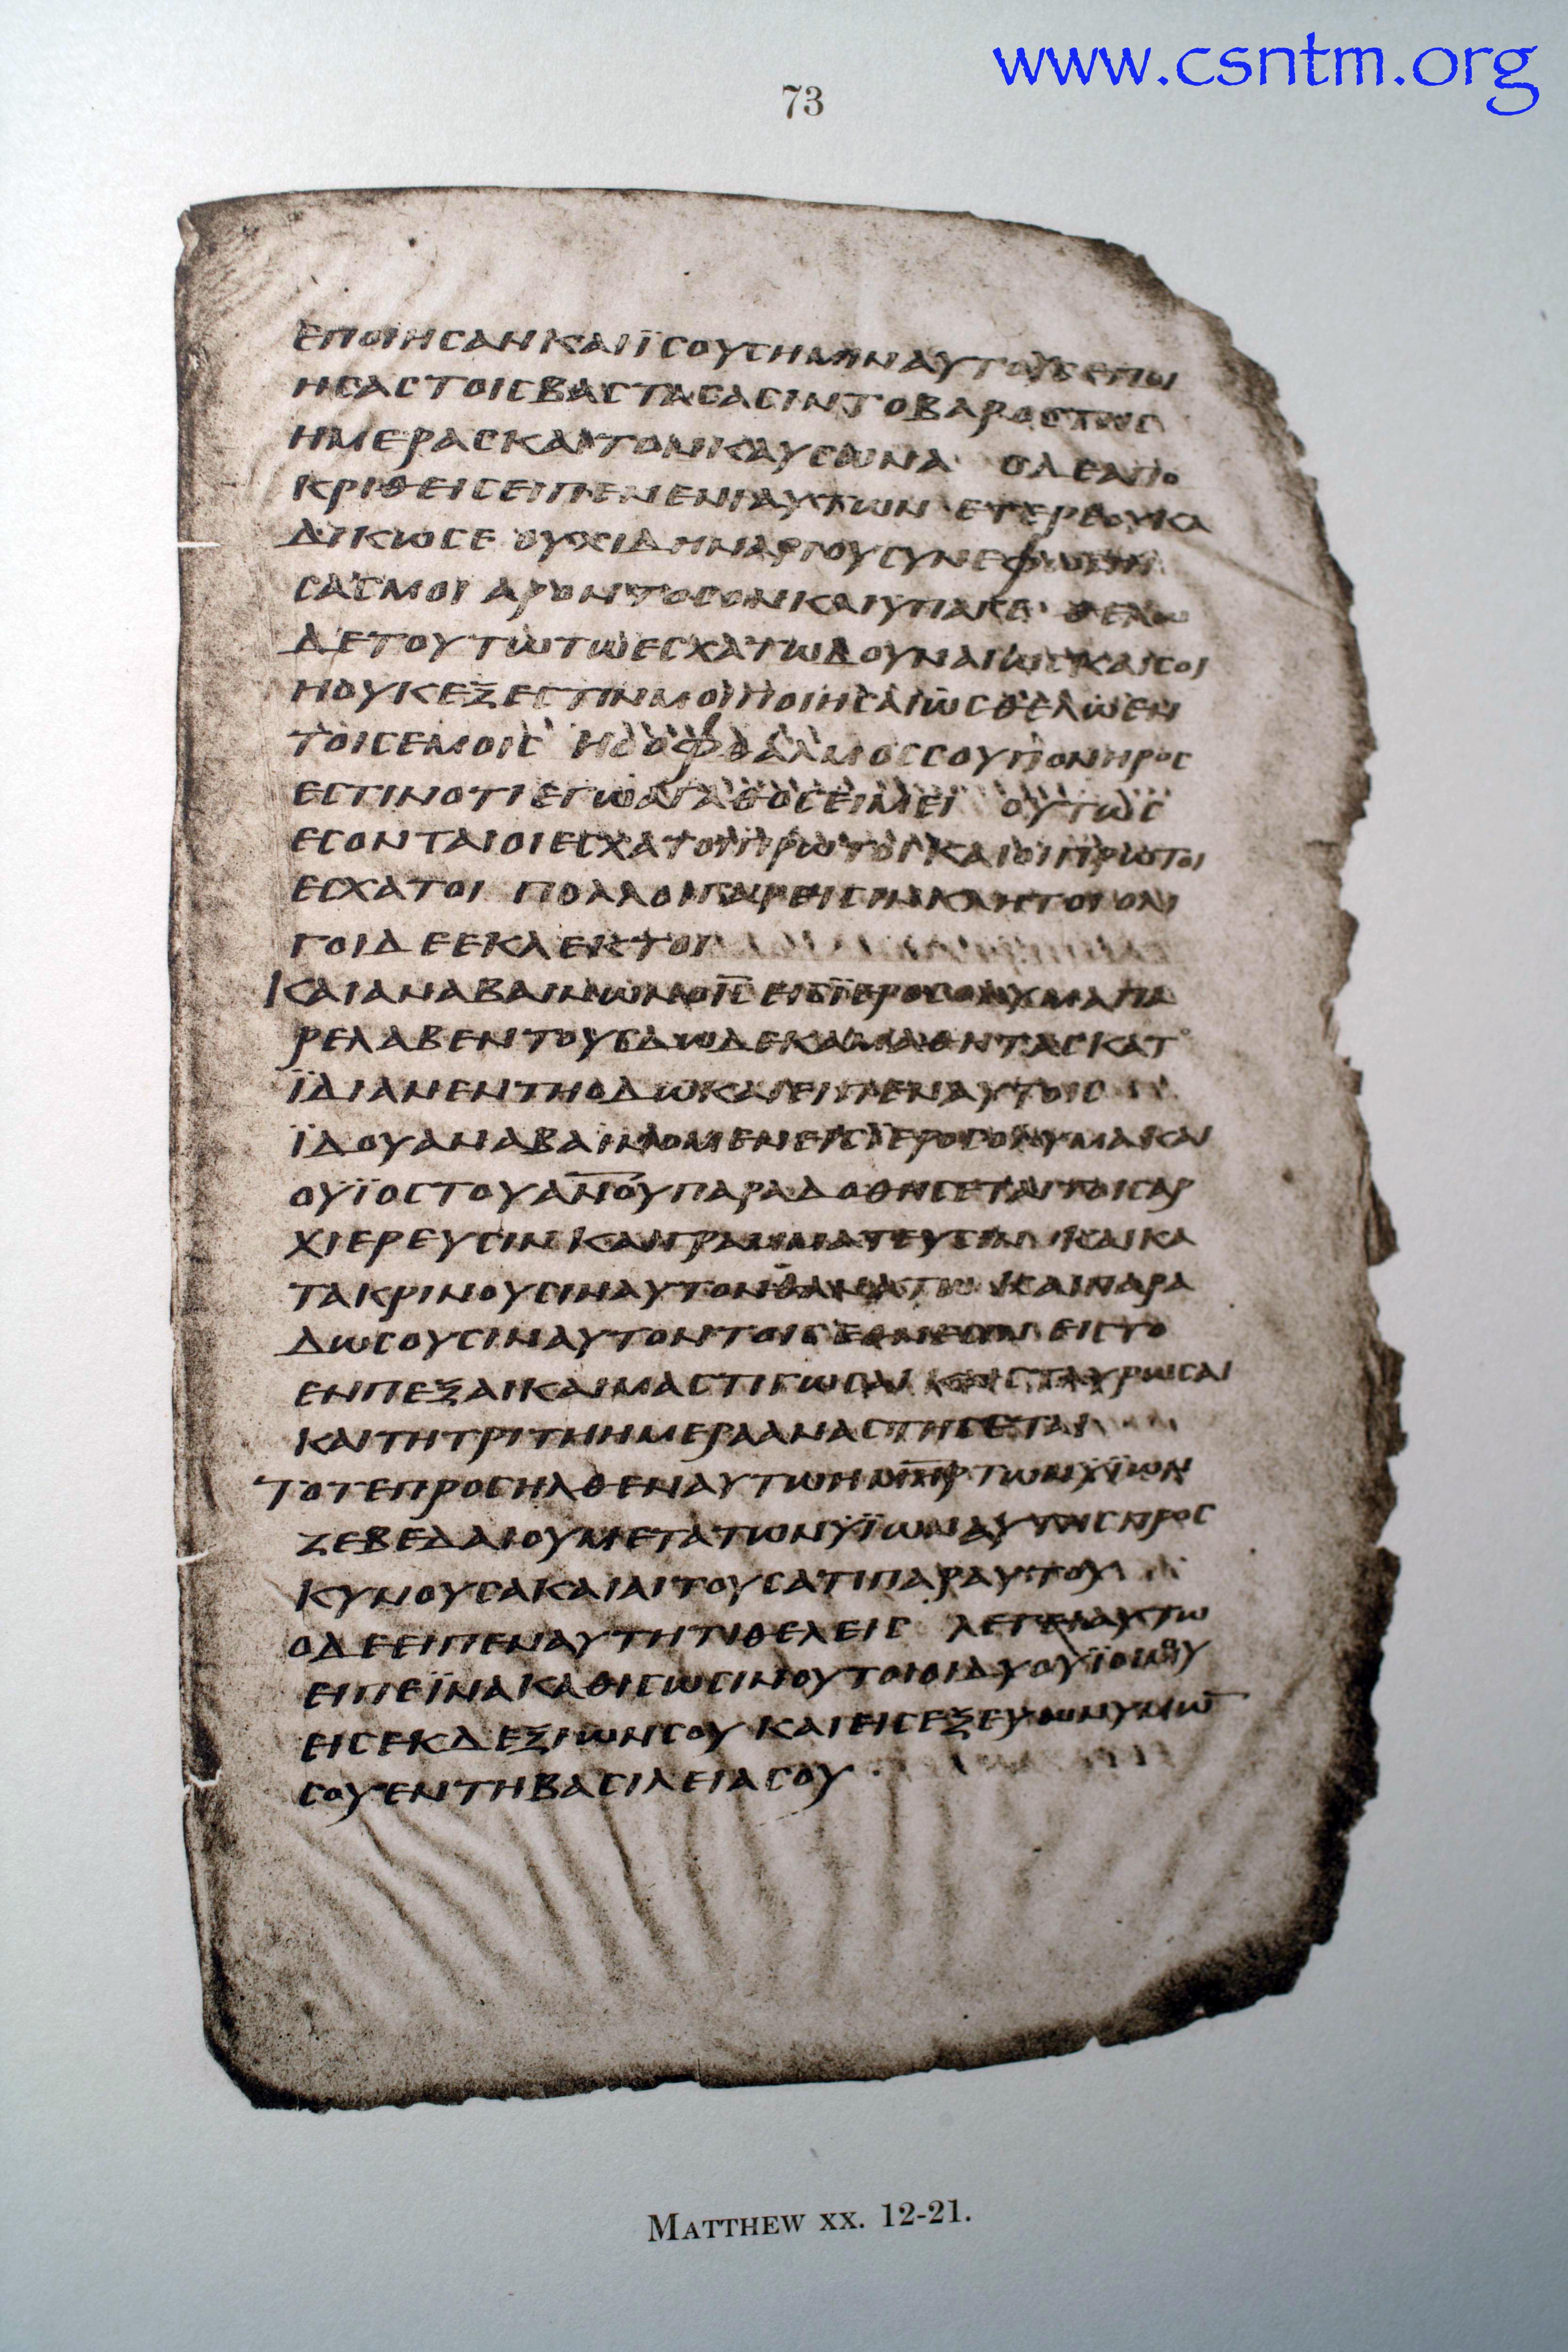 www.csntm.org
73
ΕΠΟΙΗϹΑΝΚΑΙΪϹΟΥϹΗΜΙΝΑΥΤΟΥϹΕΠΟΙ
ΗϹΑϹΤΟΙϹΒΑϹΤΑϹΑϹΙΝΤΟΒΑΡΟϹΤΗϹ
ΗΜΕΡΑϹΚΑΙΤΟΝΚΑΥϹΩΝΑ· ΟΔΕΑΠΟ
ΚΡΙΘΕΙϹΕΙΠΕΝΕΝΙΑΥΤΩΝ ΕΤΕΡΕΟΥΚΑ
ΔΙΚΩϹΕ ΟΥΧΙΔΗΝΑΡΙΟΥϹΥΝΕΦΩΝΗ
ϹΑϹΜΟΙ ΑΡΟΝΤΟϹΟΝΚΑΙΥΠΑΓΕ· ΘΕΛΩ
ΔΕΤΟΥΤΩΤΩΕϹΧΑΤΩΔΟΥΝΑΙΩϹΚΑΙϹΟΙ
ΗΟΥΚΕΞΕϹΤΙΝΜΟΙΠΟΙΗϹΑΙΩϹΘΕΛΩΕΝ
ΤΟΙϹΕΜΟΙϹ ΗΟΟΦΘΑΛΜΟϹϹΟΥΠΟΝΗΡΟϹ
ΕϹΤΙΝΟΤΙΕΓΩΑΓΑΘΟϹΕΙΜΕΙ ΟΥΤΩϹ
ΕϹΟΝΤΑΙΟΙΕϹΧΑΤΟΙΠΡΩΤΟΙΚΑΙΟΙΠΡΩΤΟΙ
ΕϹΧΑΤΟΙ ΠΟΛΛΟΙΓΑΡΕΙϹΙΝΚΛΗΤΟΙΟΛΙ
ΓΟΙΔΕΕΚΛΕΚΤΟΙ
ΚΑΙΑΝΑΒΑΙΝΩΝΟΙ̅Ϲ̅ΕΙϹΪΕΡΟϹΟΛΥΜΑΠΑ
ΡΕΛΑΒΕΝΤΟΥϹΔΩΔΕΚΑΜΑΘΗΤΑϹΚΑΤ
ΪΔΙΑΝΕΝΤΗΟΔΩΚΑΙΕΙΠΕΝΑΥΤΟΙϹ
ΪΔΟΥΑΝΑΒΑΙΝΟΜΕΝΕΙϹΙΕΡΟϹΟΛΥΜΑΚΑΙ
ΟΥΪΟϹΤΟΥΑ̅Ν̅Ο̅Υ̅ΠΑΡΑΔΟΘΗϹΕΤΑΙΤΟΙϹΑΡ
ΧΙΕΡΕΥϹΙΝΚΑΙΓΡΑΜΜΑΤΕΥϹΙΝ ΚΑΙΚΑ
ΤΑΚΡΙΝΟΥϹΙΝΑΥΤΟΝΘΑΝΑΤΩ ΚΑΙΠΑΡΑ
ΔΩϹΟΥϹΙΝΑΥΤΟΝΤΟΙϹΕΘΝΕϹΙΝ ΕΙϹΤΟ
ΕΝΠΕΞΑΙΚΑΙΜΑϹΤΙΓΩϹΑΙ ΚΑΙϹΤΑΥΡΩϹΑΙ
ΚΑΙΤΗΤΡΙΤΗΗΜΕΡΑΑΝΑϹΤΗϹΕΤΑΙ
ΤΟΤΕΠΡΟϹΗΛΘΕΝΑΥΤΩΗΜ̅Η̅Ρ̅ΤΩΝΥΪΩΝ
ΖΕΒΕΔΑΙΟΥΜΕΤΑΤΩΝΥΪΩΝΑΥΤΗϹΠΡΟϹ
ΚΥΝΟΥϹΑΚΑΙΑΙΤΟΥϹΑΤΙΠΑΡΑΥΤΟΥ
ΟΔΕΕΙΠΕΝΑΥΤΗΤΙΘΕΛΕΙϹ ΛΕΓΕΙΑΥΤΩ
ΕΙΠΕΪΝΑΚΑΘΙϹΩϹΙΝΟΥΤΟΙΟΙΔΥΟΥΪΟΙΜΟΥ
ΕΙϹΕΚΔΕΞΙΩΝϹΟΥ ΚΑΙΕΙϹΕΞΕΥΩΝΥΜΩ̅
ϹΟΥΕΝΤΗΒΑϹΙΛΕΙΑϹΟΥ·
MATTHEW XX. 12-21.